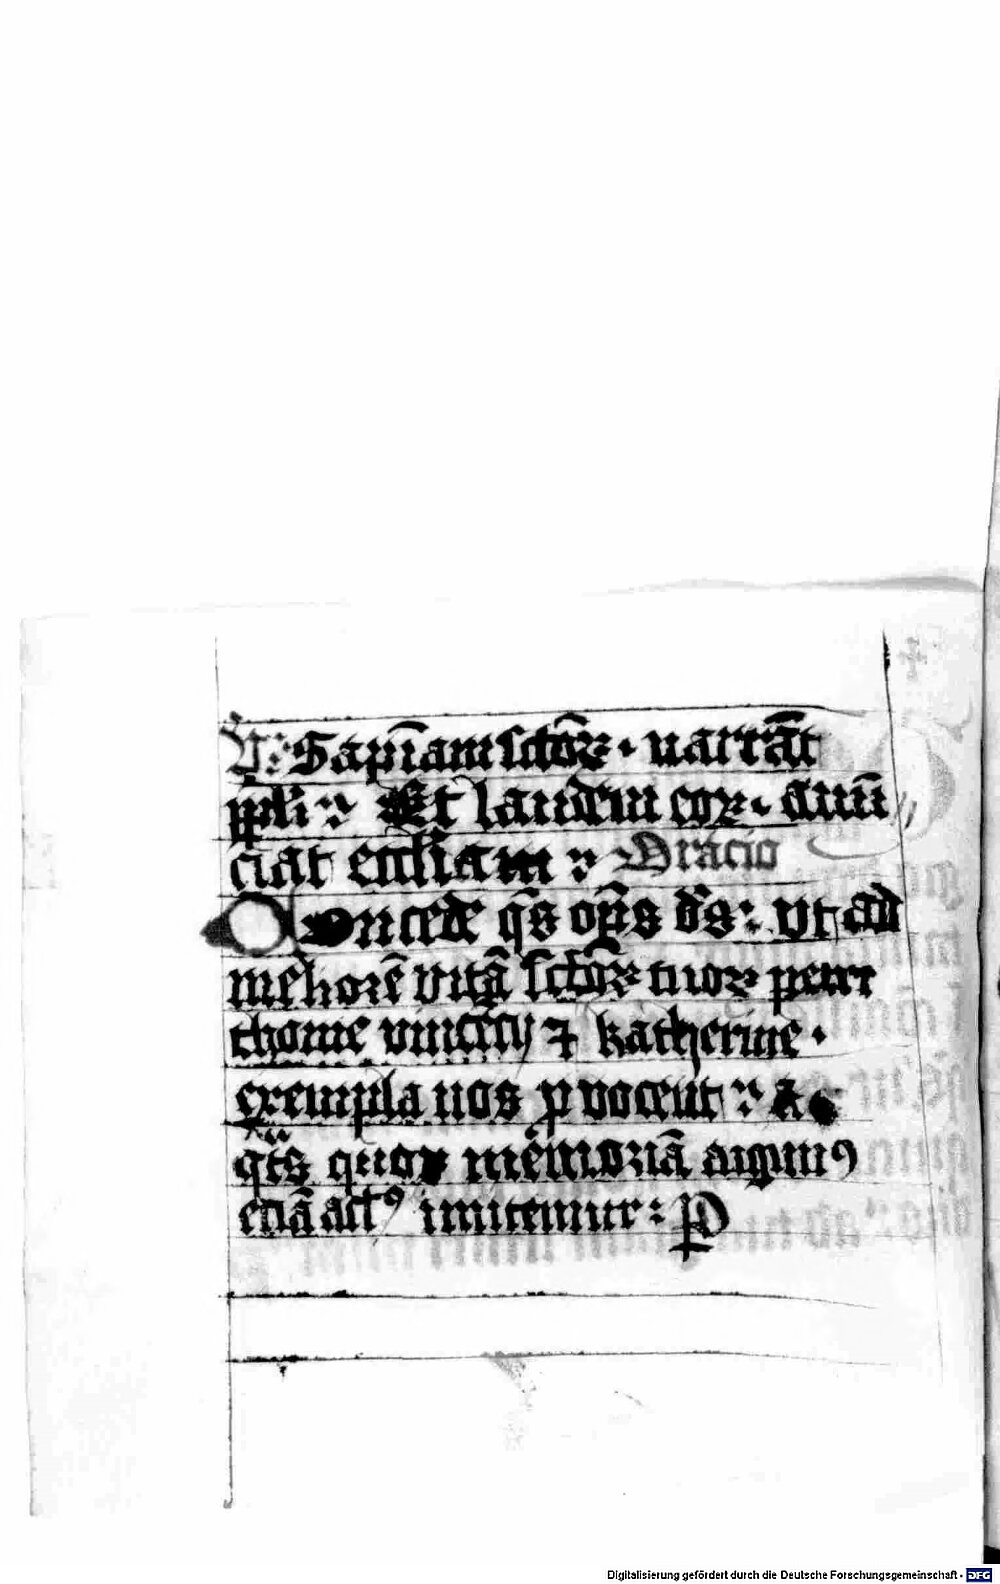 V: Sapīam sctōꝝ · narrāt
ppl'i : Et laudem eoꝝ · anūū
ciat eccl'iam : Oracio
Concede q̄s op̄s d̄s : vt ad
meliorē vitā sctōꝝ tuoꝝ petri
thome vincēcij ⁊ katherine ·
exempla nos ꝓuocent : &
q̄t̄s quoꝝ memoriā agimꝰ
eciā actꝰ imitemur : P
Digitalisierung gefördert durch die Deutsche Forschungsgemeinschaft - DFG